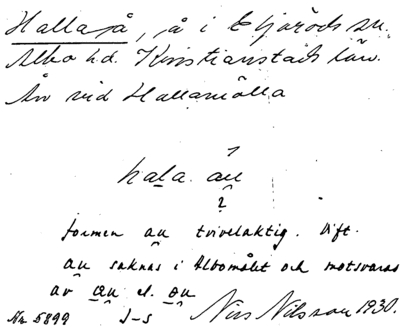 Hallaså, å i Eljaröds sn.
Albo hd. Kristianstads län.
Ån vid Hallamölla
hala au
?
formen au tvivelaktig. Dift.
au saknas i Albomålet och motsvaras
av æu el. ou
No 5899 J-s Nils Nilsson 1930.